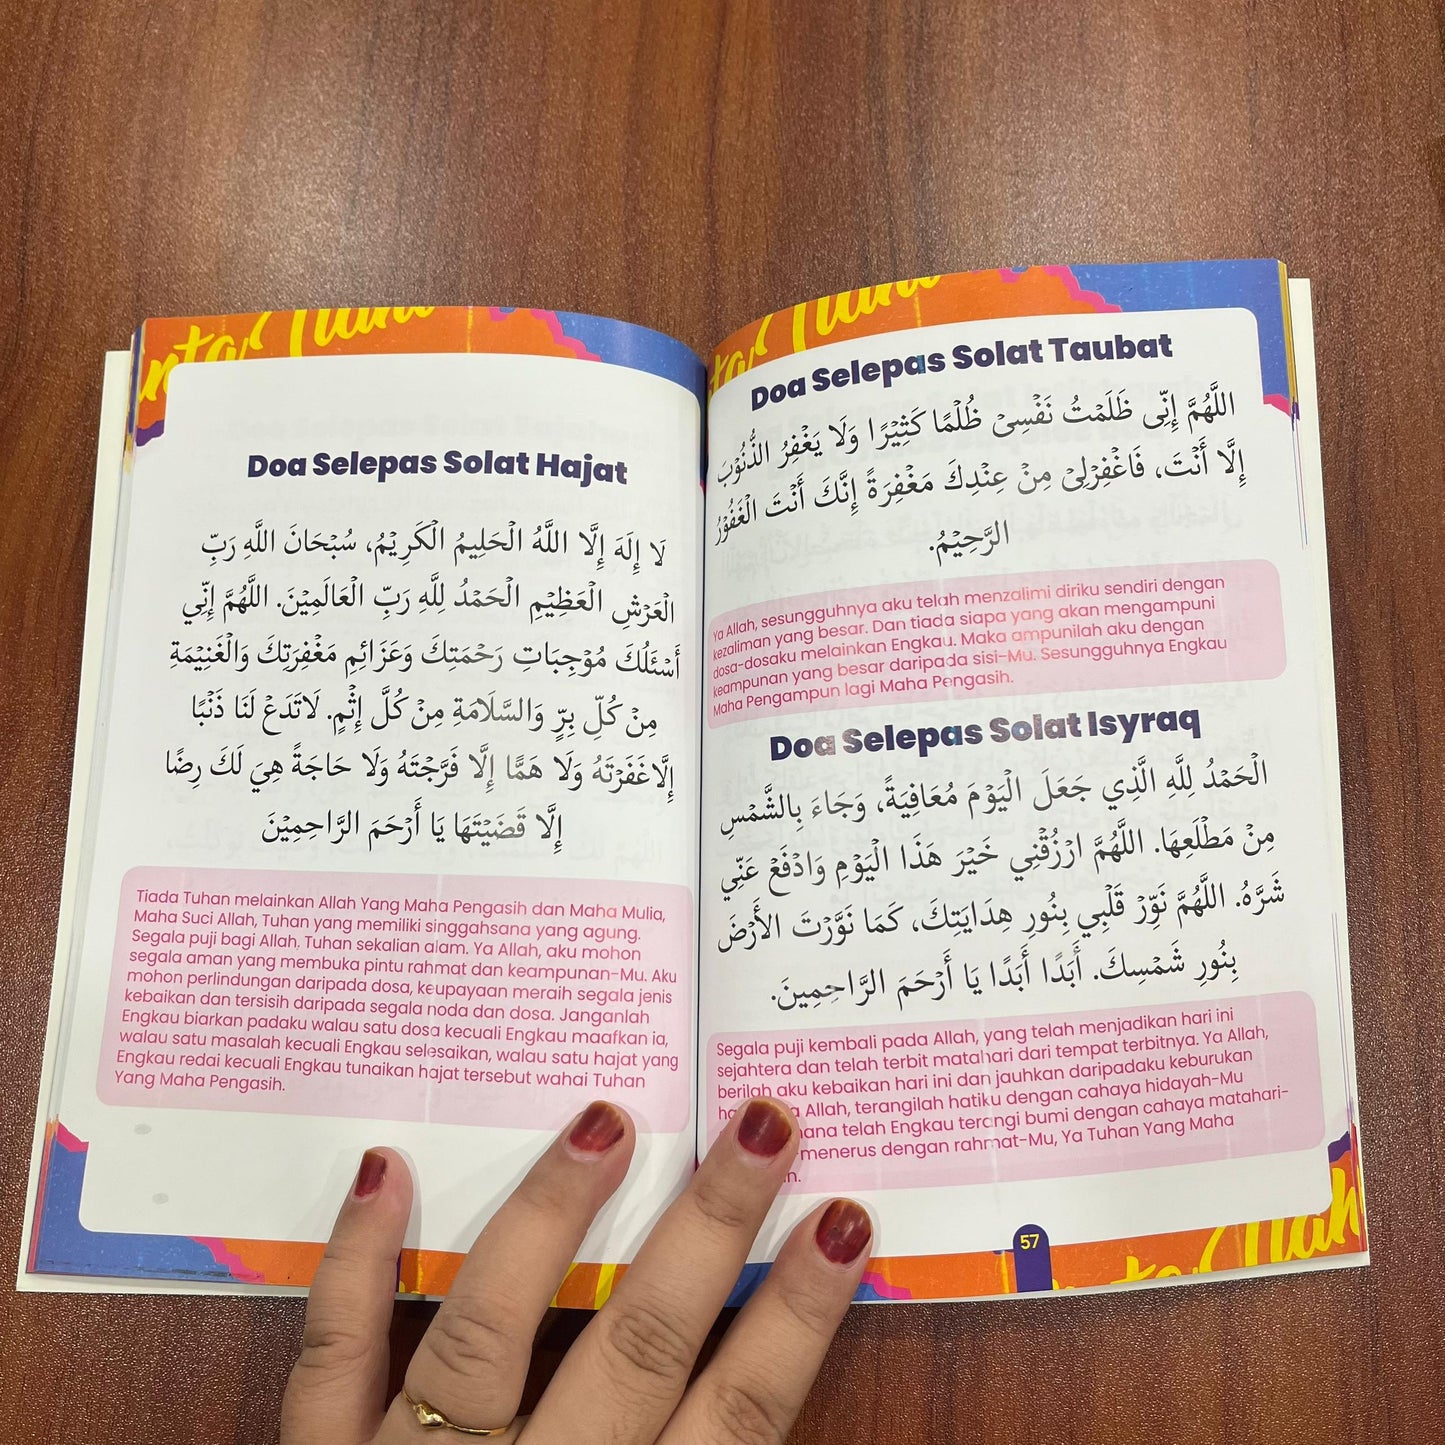 Doa Selepas Solat Hajat
لَا إِلَهَ إِلَّا اللَّهُ الْحَلِيمُ الْكَرِيْمُ، سُبْحَانَ اللَّهِ رَبِّ
الْعَرْشِ الْعَظِيْمِ الْحَمْدُ لِلَّهِ رَبِّ الْعَالَمِيْنَ. اللَّهُمَّ إِنِّي
أَسْئَلُكَ مُوْجِبَاتِ رَحْمَتِكَ وَعَزَائِمِ مَغْفِرَتِكَ وَالْغَنِيْمَةِ
مِنْ كُلِّ بِرٍّ وَالسَّلَامَةِ مِنْ كُلِّ إِثْمٍ. لَاتَدَعْ لَنَا ذَنْبًا
إِلَّاغَفَرْتَهُ وَلَا هَمًّا إِلَّا فَرَّجْتَهُ وَلَا حَاجَةً هِيَ لَكَ رِضًا
إِلَّا قَضَيْتَهَا يَا أَرْحَمَ الرَّاحِمِيْنَ
Tiada Tuhan melainkan Allah Yang Maha Pengasih dan Maha Mulia,
Maha Suci Allah, Tuhan yang memiliki singgahsana yang agung.
Segala puji bagi Allah, Tuhan sekalian alam. Ya Allah, aku mohon
segala aman yang membuka pintu rahmat dan keampunan-Mu. Aku
mohon perlindungan daripada dosa, keupayaan meraih segala jenis
kebaikan dan tersisih daripada segala noda dan dosa. Janganlah
Engkau biarkan padaku walau satu dosa kecuali Engkau maafkan ia,
walau satu masalah kecuali Engkau selesaikan, walau satu hajat yang
Engkau redai kecuali Engkau tunaikan hajat tersebut wahai Tuhan
Yang Maha Pengasih.
Doa Selepas Solat Taubat
اللَّهُمَّ إِنِّى ظَلَمْتُ نَفْسِىْ ظُلْمًا كَثِيْرًا وَلَا يَغْفِرُ الذُّنُوْبَ
إِلَّا أَنْتَ، فَاغْفِرْلِىْ مِنْ عِنْدِكَ مَغْفِرَةً إِنَّكَ أَنْتَ الْغَفُوْرُ
الرَّحِيْمُ.
Ya Allah, sesungguhnya aku telah menzalimi diriku sendiri dengan
kezaliman yang besar. Dan tiada siapa yang akan mengampuni
dosa-dosaku melainkan Engkau. Maka ampunilah aku dengan
keampunan yang besar daripada sisi-Mu. Sesungguhnya Engkau
Maha Pengampun lagi Maha Pengasih.
Doa Selepas Solat Isyraq
الْحَمْدُ لِلَّهِ الَّذِي جَعَلَ الْيَوْمَ مُعَافِيَةً، وَجَاءَ بِالشَّمْسِ
مِنْ مَطْلَعِهَا. اللَّهُمَّ ارْزُقْنِي خَيْرَ هَذَا الْيَوْمِ وَادْفَعْ عَنِّي
شَرَّهُ. اللَّهُمَّ نَوِّرْ قَلْبِي بِنُورِ هِدَايَتِكَ، كَمَا نَوَّرْتَ الأَرْضَ
بِنُورِ شَمْسِكَ. أَبَدًا أَبَدًا يَا أَرْحَمَ الرَّاحِمِينَ.
Segala puji kembali pada Allah, yang telah menjadikan hari ini
sejahtera dan telah terbit matahari dari tempat terbitnya. Ya Allah,
berilah aku kebaikan hari ini dan jauhkan daripadaku keburukan
Allah, terangilah hatiku dengan cahaya hidayah-Mu
telah Engkau terangi bumi dengan cahaya matahari-
menerus dengan rahmat-Mu, Ya Tuhan Yang Maha
57